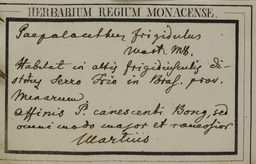 HERBARIUM REGIUM MONACENSE.
Paepalanthus frigidulus
Mart. MS.
Habitat in altis frigidiusculis di-
strictus Serro Frio in Bras. prov.
Minarum
affinis P. canescenti Bong, sed
omni modo major et ramosior
Martius